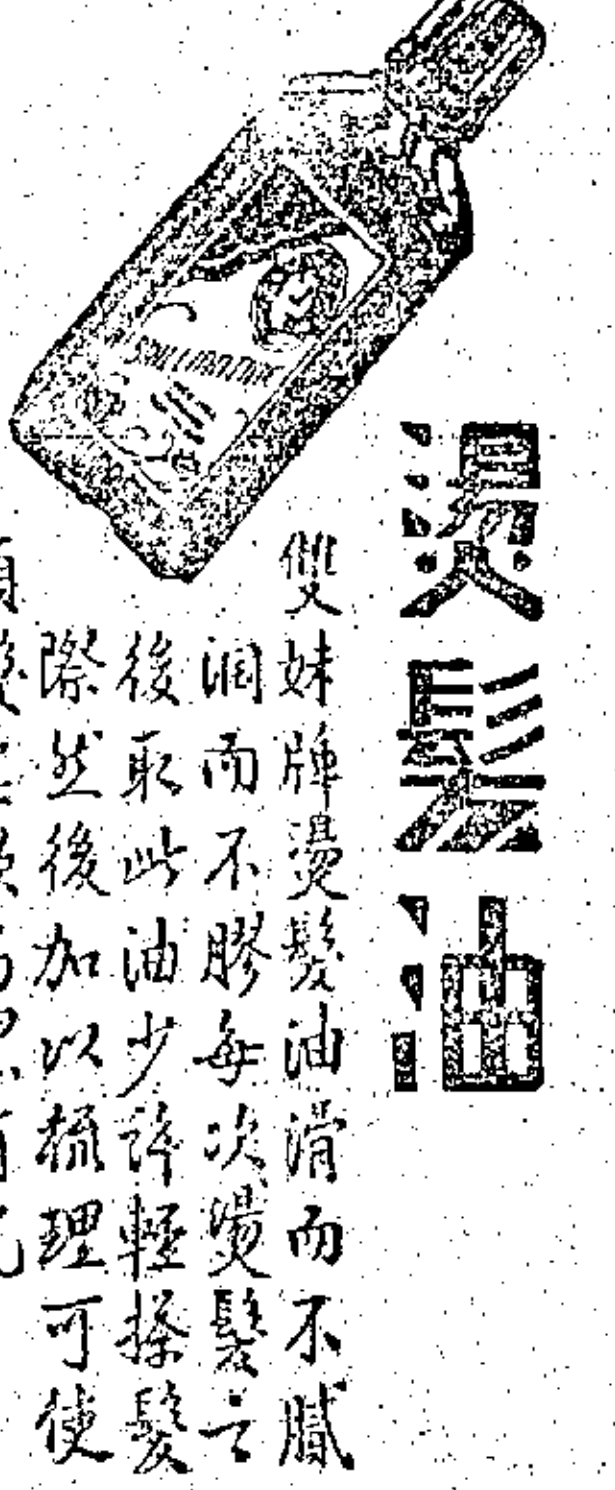 燙髮油
雙妹牌燙髮油滑而不膩
潤而不膠每次燙髮之
後取此油少許輕搽髮
際然後加以梳理可使